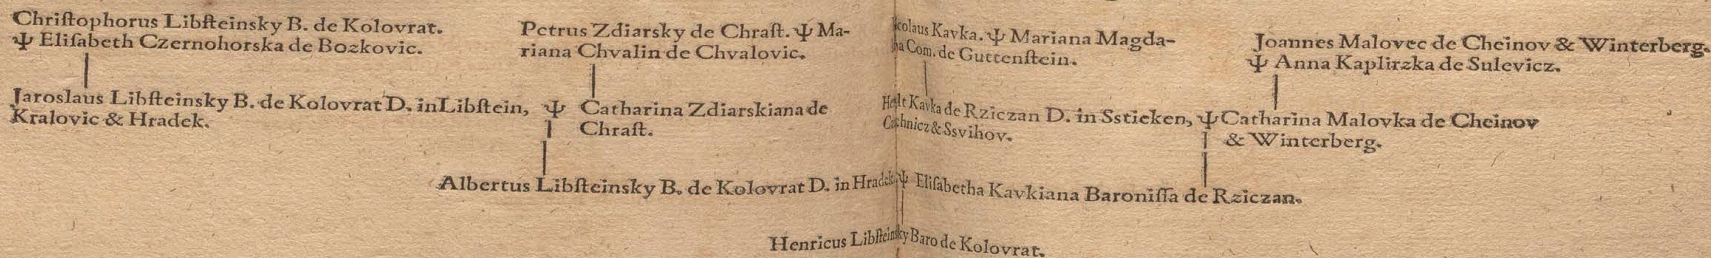 Christophorus Libsteinsky B. de Kolovrat.
Ψ Elisabeth Czernohorska de Bozkovic.
Petrus Zdiarsky de Chrast. Ψ Ma-
riana Chvalin de Chvalovic.
colaus Kavka. Ψ Mariana Magda-
Com. de Guttenstein.
Joannes Malovec de Cheinov & Winterberg.
Ψ Anna Kaplirzka de Sulevicz.
Jaroslaus Libsteinsky B. de Kolovrat D. in Libstein, Ψ
Kralovic & Hradek.
Catharina Zdiarskiana de
Chrast.
Kavka de Rziczan D. in Sstieken, Ψ
& Ssvihov.
Catharina Malovka de Cheinov
& Winterberg.
Albertus Libsteinsky B. de Kolovrat D. in Hradek Ψ Elisabetha Kavkiana Baronissa de Rziczan.
Henricus Libsteinsky Baro de Kolovrat.